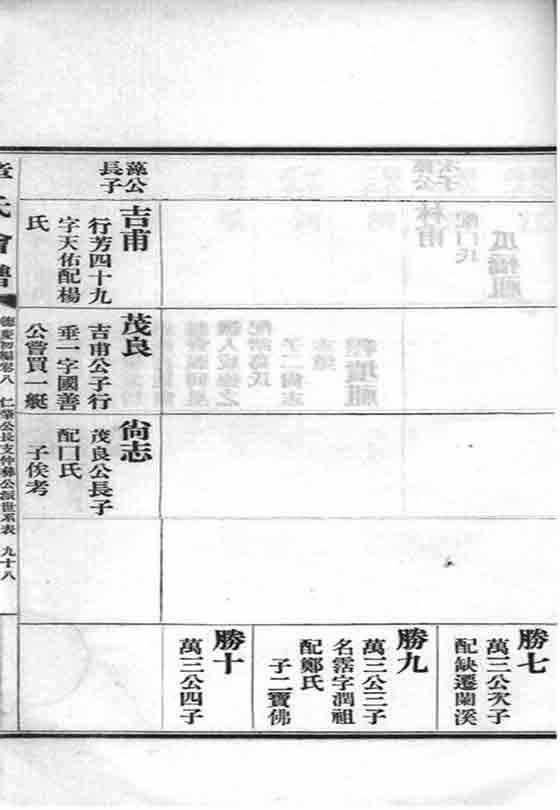 勝七
萬三公次子
配缺遷蘭溪
勝九
萬三公三子
名霑字潤祖
配鄭氏
子二寶佛
勝十
萬三公四子
藻公
長子
吉甫
行芳四十九
字天佑配楊
氏
茂良
吉甫公子行
垂一字國善
公嘗買一艇
尙志
茂良公長子
配囗氏
子俟考
章氏會譜
德慶初編卷八
仁肇公長支仲彝公派世系表
九十八